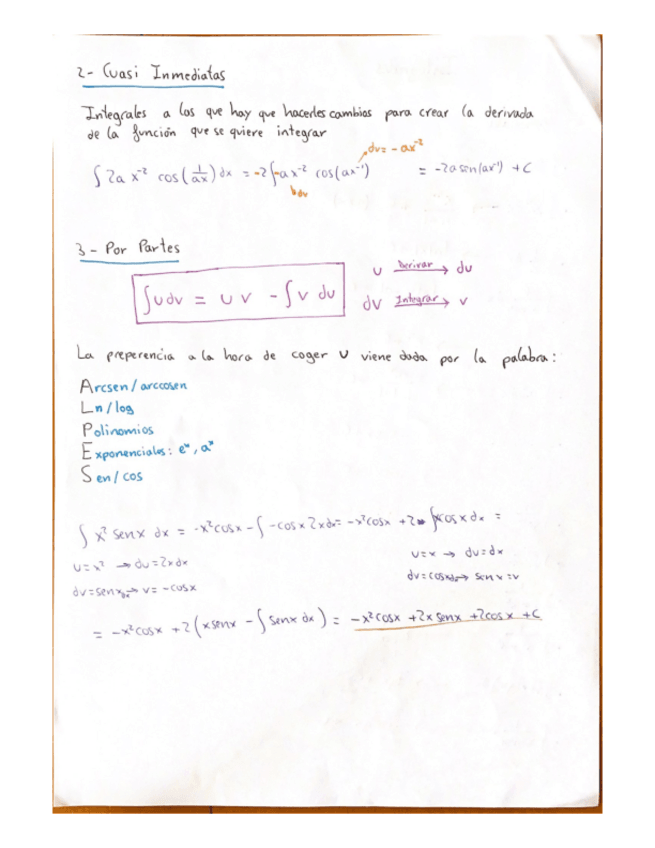 2- Cuasi Inmediatas
Integrales a las que hay que hacerles cambios para crear la derivada
de la función que se quiere integrar
dv= -ax⁻²
∫ 2a x⁻² cos(1/ax) dx = -2 ∫-a x⁻² cos(ax⁻¹) = -2a sen(ax⁻¹) + C
dv
3- Por Partes
∫udv = u v - ∫v du
u Derivar → du
dv Integrar → v
La preperencia a la hora de coger u viene dada por la palabra:
Arcsen/arccosen
Ln/log
Polinomios
Exponenciales: eˣ, aˣ
Sen/cos
∫ x² senx dx = -x²cosx - ∫ -cosx 2xdx = -x²cosx + 2 ∫xcosx dx =
u=x² → du=2xdx
dv=senx dx → v= -cosx
u=x → du=dx
dv=cosxdx → senx=v
= -x²cosx + 2(xsenx - ∫senx dx) = -x²cosx +2x senx +2cosx +C